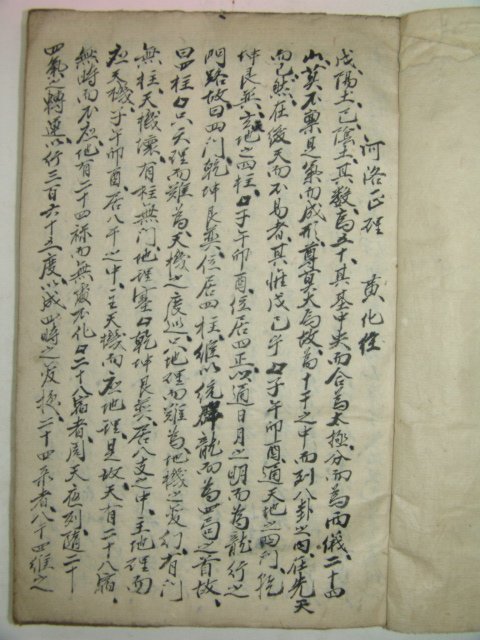 河洛正經 黃化
戊陽土己陰土其數為五十其基中央而合為太極分而為兩儀二十四
山莫不稟是氣而成形尊莫大焉故為十干之中而列八卦之內在先天
而已然在後天而不易者其惟戊己乎子午卯酉通天地之四門乾
坤艮巽立地之四柱子午卯酉位居四正以通日月之明而為龍行之
門路故曰四門乾坤艮巽位居四柱維以統群龍而為四局之首故
曰四柱只天理而難為天機之度巡只地理而難為地機之變行有門
無柱天機壞有柱無門地理塞乾坤艮巽居八支之中主地理而
應天機子午卯酉居八干之中主天機而應地理是故天有二十八宿
無時而不應地有二十四祿而無處不化二十八宿者周天應刻隨二十
四氣之轉運以行三百六十五度以成四時之變換二十四者八十四維之